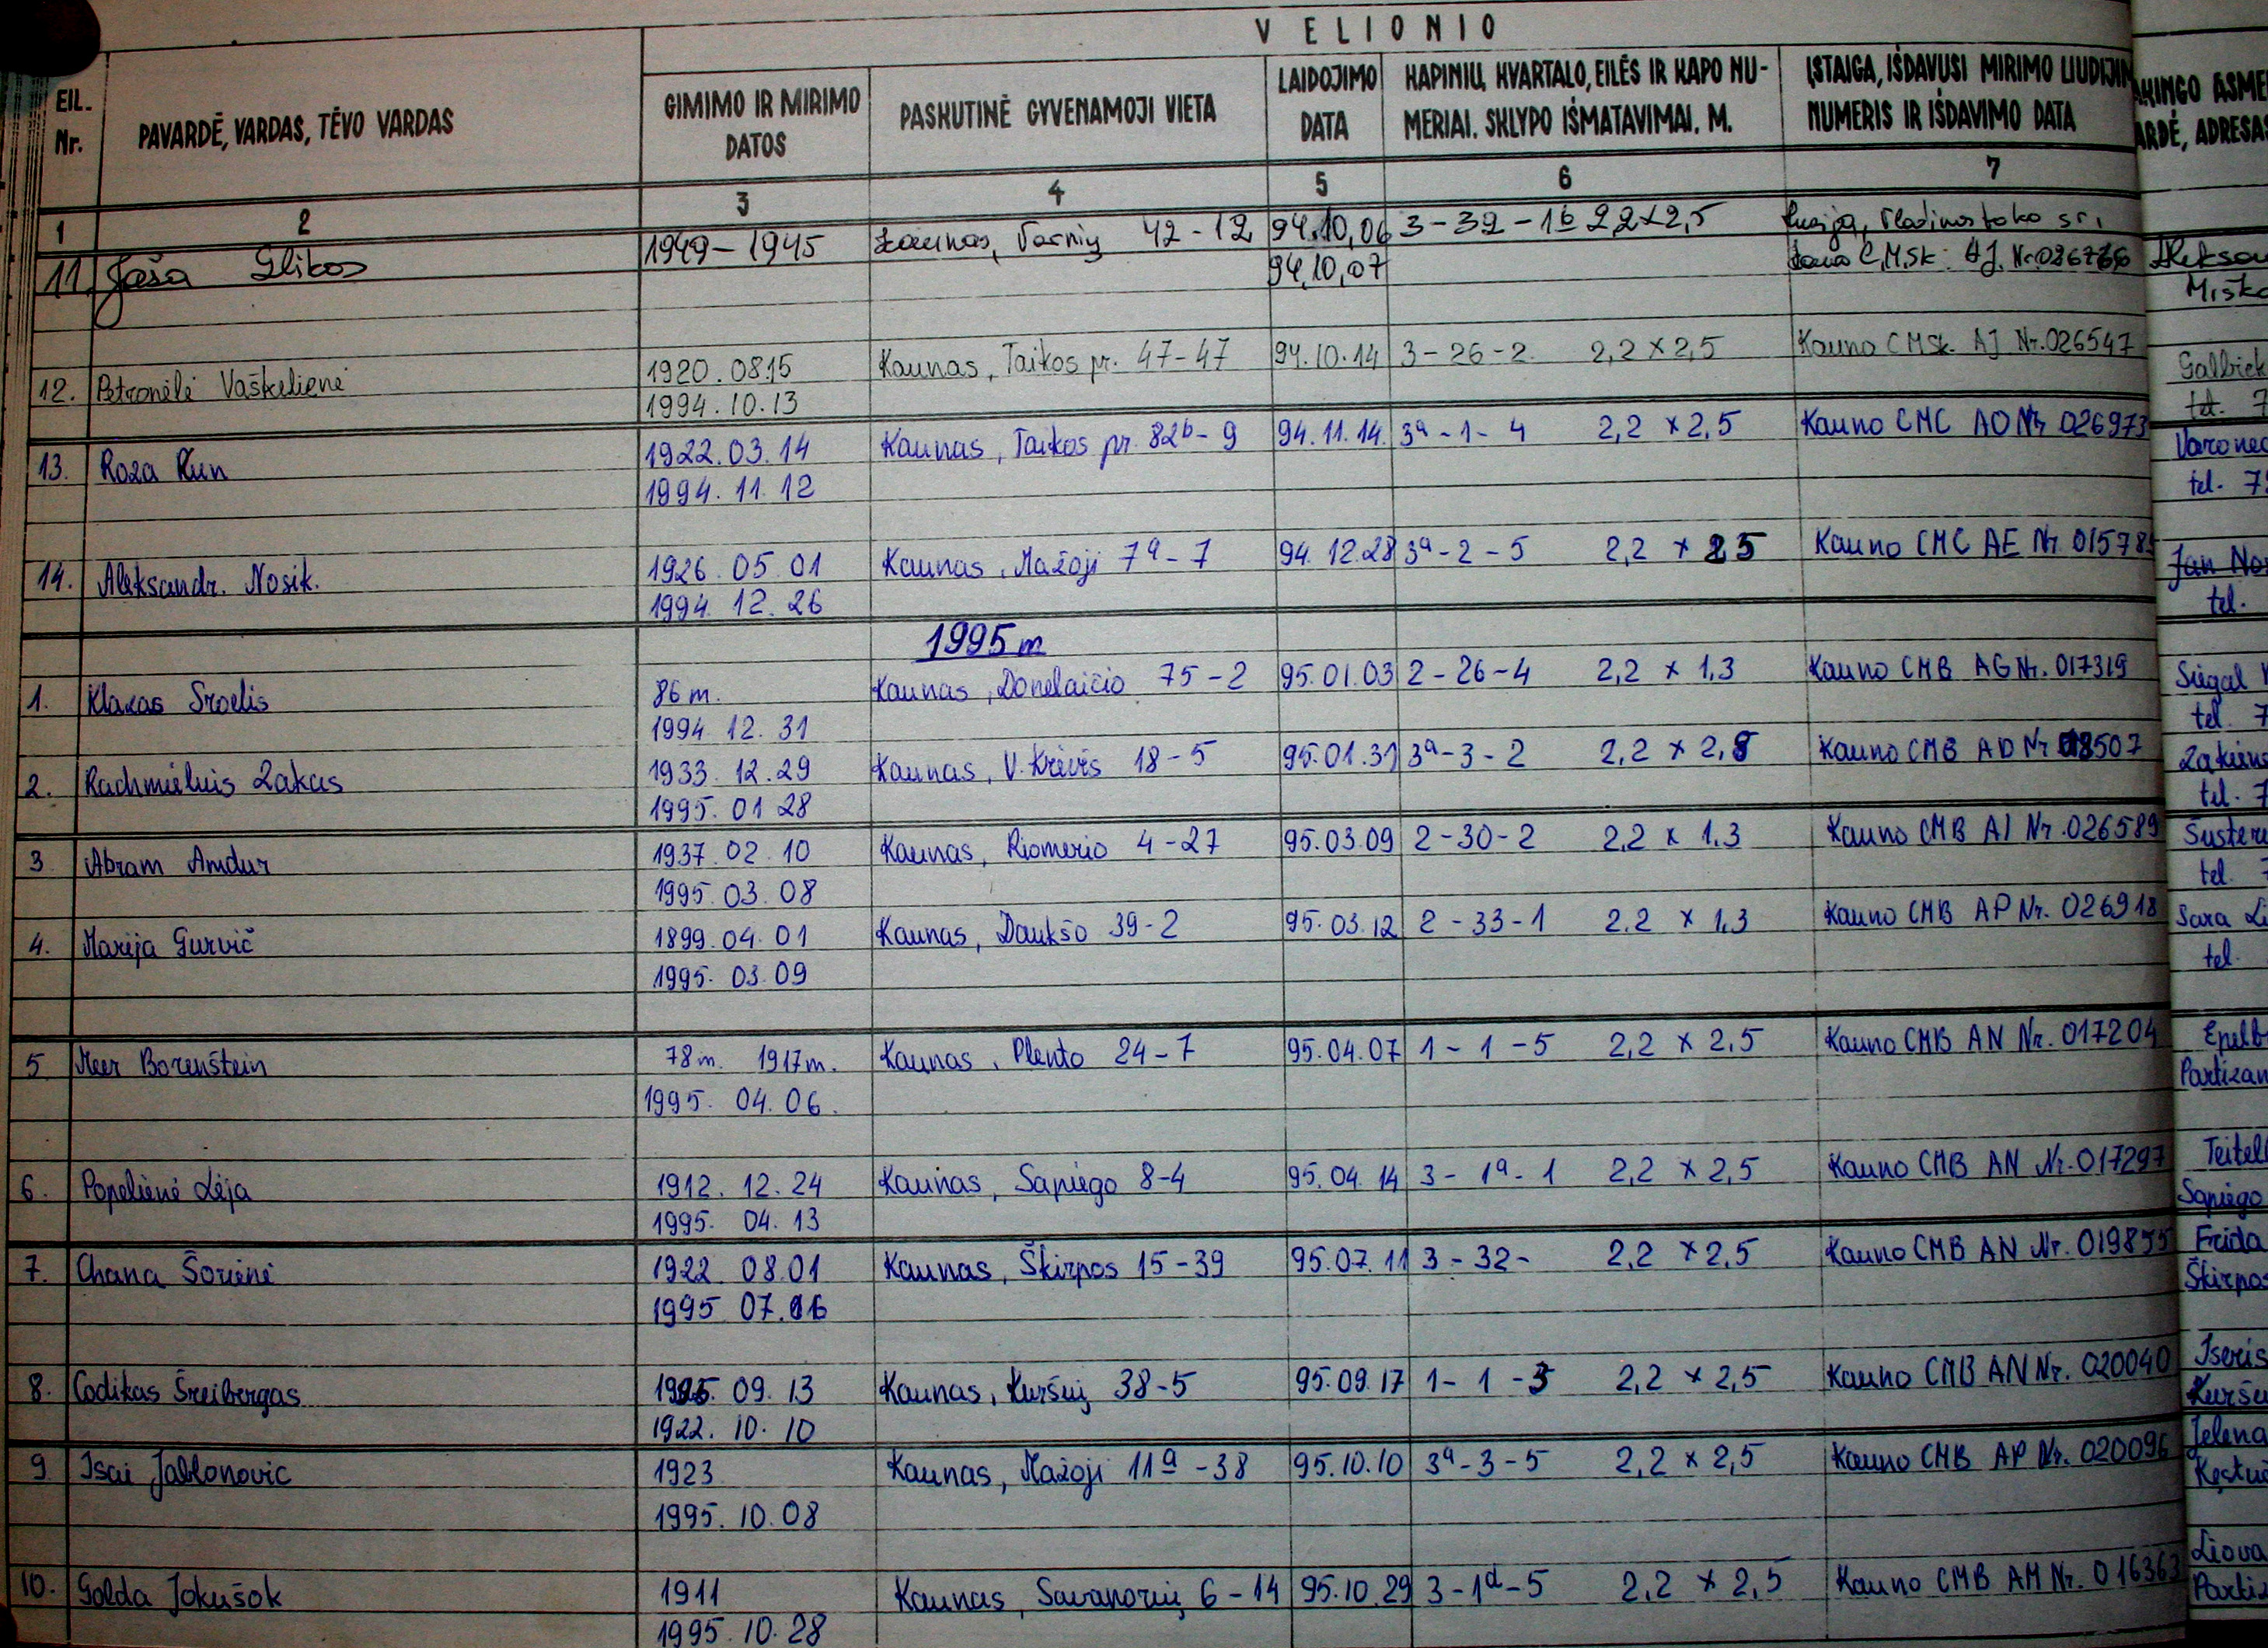 VELIONIO
EIL. Nr. PAVARDĖ, VARDAS, TĖVO VARDAS GIMIMO IR MIRIMO DATOS PASKUTINĖ GYVENAMOJI VIETA LAIDOJIMO DATA KAPINIŲ, KVARTALO, EILĖS IR KAPO NUMERIAI. SKLYPO IŠMATAVIMAI. M. ĮSTAIGA, IŠDAVUSI MIRIMO LIUDIJIM NUMERIS IR IŠDAVIMO DATA
1 2 3 4 5 6 7
11 Jaša Glikos 1949-1945 Kaunas, Varnių 42-12 94.10.06 3-32-16 2,2x2,5
94,10,07
12. Petronėlė Vaškelienė 1920.08.15 Kaunas, Taikos pr. 47-47 94.10.14 3-26-2 2,2 x 2,5 Kauno CMSk. AJ Nr.026547
1994.10.13
13. Roza Kun 1922.03.14 Kaunas, Taikos pr. 82b-9 94.11.14. 3a-1-4 2,2 x 2,5 Kauno CMC AO Nr 026973
1994.11.12 tel.
14. Aleksandr. Nosik. 1926.05.01 Kaunas, Mažoji 7a-7 94.12.28 3a-2-5 2,2 x 2 5 Kauno CMC AE Nr. 01578
1994.12.26 tel.
1995 m
1. Klaxas Sroelis 86 m. Kaunas, Donelaičio 75-2 95.01.03 2-26-4 2,2 x 1,3 Kauno CMB AG Nr. 017319
1994 12.31 tel.
2. Rachmielius Zakas 1933.12.29 Kaunas, V. Krėvės 18-5 95.01.31 3a-3-2 2,2 x 2,5 Kauno CMB AD Nr 018507
1995.01 28 tel.
3 Abram Amdur 1937.02.10 Kaunas, Riomerio 4-27 95.03.09 2-30-2 2,2 x 1.3 Kauno CMB AI Nr.026589
1995.03.08 tel.
4. Marija Gurvič 1899.04.01 Kaunas, Daukšo 39-2 95.03.12 2-33-1 2.2 x 1,3 Kauno CMB AP Nr. 026918 Sara
1995.03.09 tel.
5 Meer Borenštein 78m. 1917m. Kaunas, Plento 24-7 95.04.07 1-1-5 2,2 x 2,5 Kauno CMB AN Nr. 017204
1995.04.06.
6. Popelienė Lėja 1912.12.24 Kaunas, Sapiego 8-4 95.04.14 3-1a-1 2,2 x 2,5 Kauno CMB AN Nr.017297
1995.04.13 Sapiego
7. Chana Šorienė 1922.08.01 Kaunas, Škirpos 15-39 95.07.11 3-32- 2,2 x 2,5 Kauno CMB AN Nr. 019855 Frida
1995 07. Škirpos
8. Codikas Šreibergas 09.13 Kaunas, Kuršių 38-5 95.09.17 1-1-3 2,2 x 2,5 Kauno CMB AN Nr. 020040
1922.10.10
9 Isai Jablonovic 1923 Kaunas, Mažoji 11a-38 95.10.10 3a-3-5 2,2 x 2,5 Kauno CMB AP Nr. 020096 Jelena
1995.10.08
10. Golda Jokušok 1911 Kaunas, Savanorių 6-14 95.10.29 3-1d-5 2,2 x 2,5 Kauno CMB AM Nr. 016363 Liova
1995.10.28